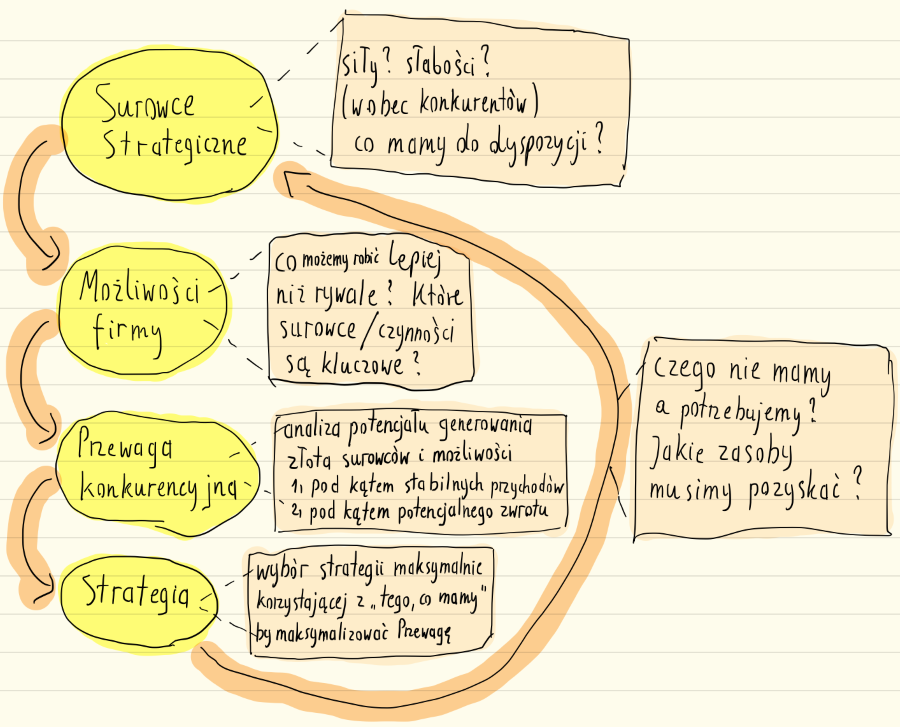 Surowce
Strategiczne
siły? słabości?
(wobec konkurentów)
co mamy do dyspozycji?
Możliwości
firmy
co możemy robić lepiej
niż rywale? Które
surowce/czynności
są kluczowe?
Przewaga
konkurencyjna
analiza potencjału generowania
złota surowców i możliwości
1, pod kątem stabilnych przychodów
2, pod kątem potencjalnego zwrotu
Strategia
wybór strategii maksymalnie
korzystającej z „tego, co mamy"
by maksymalizować Przewagę
czego nie mamy
a potrzebujemy?
Jakie zasoby
musimy pozyskać?